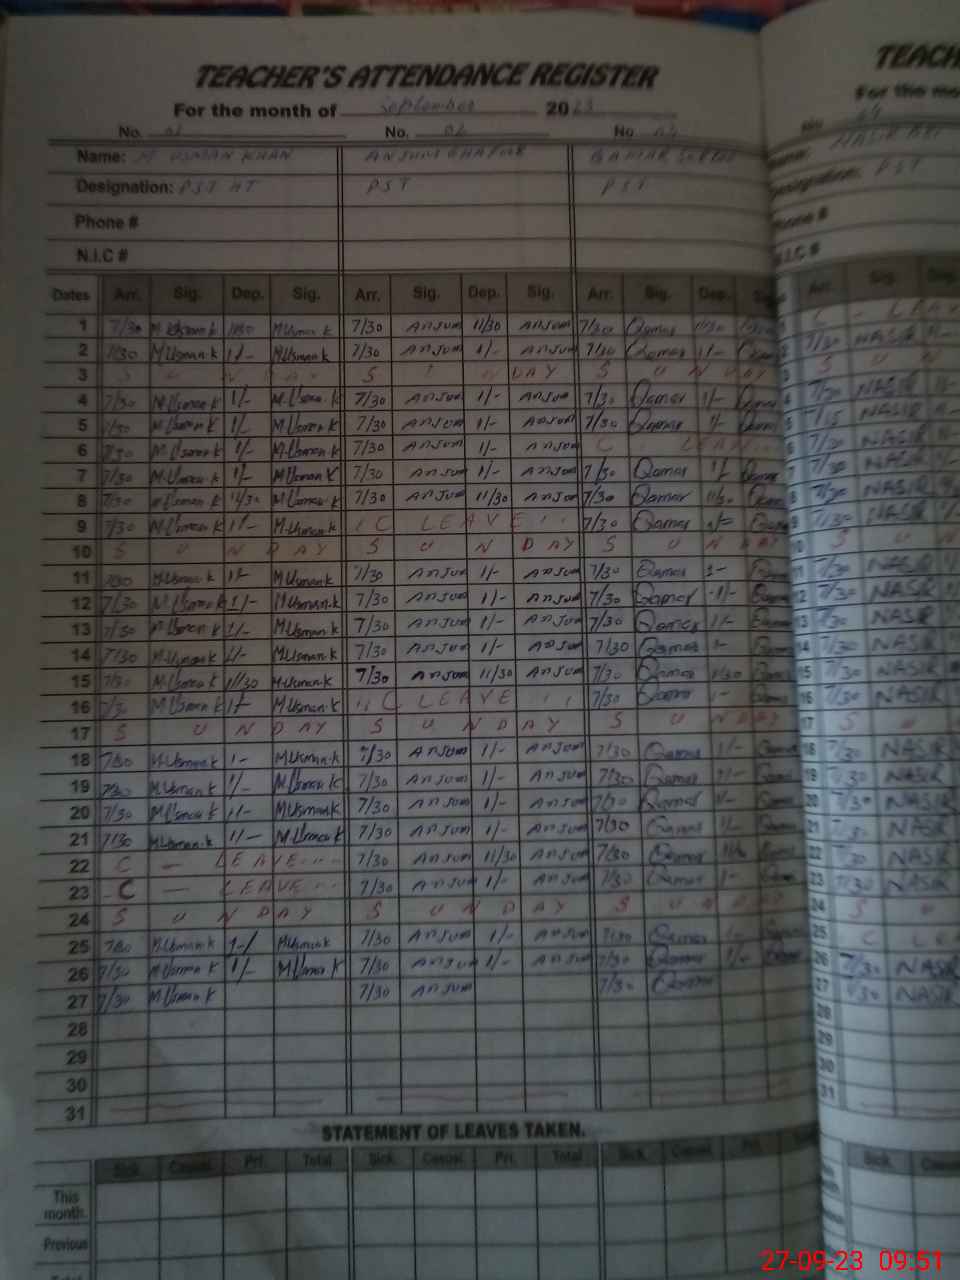 TEACHER'S ATTENDANCE REGISTER TEACH
For the month of September 2023 For the mo
No. 01 No. 02 No 03
Name: M USMAN KHAN ANJUM GHAFUR
Designation: PST HT PST PST PST
Phone # Phone #
N.I.C # N.I.C #
Dates Arr. Sig. Dep. Sig. Arr. Sig. Dep. Sig. Arr. Sig. Dep. Arr. Sig. Dep.
1 7/30 M.Usman k 11/30 M.Usman k 7/30 Anjum 11/30 Anjum 7/30 Qamar 11/30 C - LEA
2 7/30 M.Usman.k 1/- M.Usman k 7/30 Anjum 1/- Anjum 7/30 Qamar 1/- 7/30 NASIR
3 S U N DAY S U N DAY S U N DAY S U N
4 7/30 M.Usman k 1/- M.Usman.k 7/30 Anjum 1/- Anjum 7/30 Qamar 1/- 7/30 NASIR
5 7/30 M.Usman k 1/- M.Usman k 7/30 Anjum 1/- Anjum 7/30 Qamar 1/- 7/15 NASIR
6 7/30 M.Usman k 1/- M.Usman.k 7/30 Anjum 1/- Anjum C LEAVE 7/30 NASIR
7 7/30 M.Usman k 1/- M.Usman K 7/30 Anjum 1/- Anjum 7/30 Qamar 1/- 7/30 NASIR
8 7/30 M.Usman k 11/30 M.Usman.k 7/30 Anjum 11/30 Anjum 7/30 Qamar 11/30 7/30 NASIR
9 7/30 M.Usman k 1/- M.Usman k C LEAVE 7/30 Qamar 7/30 NASIR
10 S U N DAY S U N DAY S U N DAY S U N
11 7/30 M.Usman.k 1/- M.Usman.k 7/30 Anjum 1/- Anjum 7/30 Qamar 7/30 NASIR
12 7/30 M.Usman k 1/- M.Usman.k 7/30 Anjum 1/- Anjum 7/30 Qamar 1/- 7/30 NASIR
13 7/30 M.Usman k 1/- M.Usman.k 7/30 Anjum 1/- Anjum 7/30 Qamar 1/- 7/30 NASIR
14 7/30 M.Usman k 1/- M.Usman.k 7/30 Anjum 1/- Anjum 7/30 Qamar 7/30 NASIR
15 7/30 M.Usman k 11/30 M.Usman.k 7/30 Anjum 11/30 Anjum 7/30 Qamar 11/30 7/30 NASIR
16 7/30 M.Usman k 1/- M.Usman.k C LEAVE 7/30 Qamar 7/30 NASIR
17 S U N DAY S U N DAY S U N DAY S U
18 7/30 M.Usman.k 1- M.Usman.k 7/30 Anjum 1/- Anjum 7/30 Qamar 1/- 7/30 NASIR
19 7/30 M.Usman k 1/- M.Usman k 7/30 Anjum 1/- Anjum 7/30 Qamar 7/30 NASIR
20 7/30 M.Usman k 1/- M.Usman k 7/30 Anjum 1/- Anjum 7/30 Qamar 7/30 NASIR
21 7/30 M.Usman.k 1/- M.Usman K 7/30 Anjum 1/- Anjum 7/30 Qamar 7/30 NASIR
22 C - LEAVE 7/30 Anjum 11/30 Anjum 7/30 Qamar 7/30 NASIR
23 C - LEAVE 7/30 Anjum 1/- Anjum 7/30 Qamar 7/30 NASIR
24 S U N DAY S U N DAY S U N DAY S U
25 7/30 M.Usman k 1-/ M.Usman k 7/30 Anjum 1/- Anjum 7/30 Qamar C LEA
26 7/30 M.Usman k 1/- M.Usman K 7/30 Anjum 1/- Anjum 7/30 Qamar 1/- 7/30 NASIR
27 7/30 M.Usman K 7/30 Anjum 7/30 Qamar 7/30 NASIR
28
29
30
31
STATEMENT OF LEAVES TAKEN.
Sick Casual Pri. Total Sick. Casual. Pri. Total Sick. Casual Pri. Sick. Casual
This
month.
Previous
27-09-23 09:51